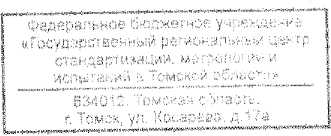 Федеральное бюджетное учреждение
«Государственный региональный центр
стандартизации, метрологии и
испытаний в Томской области»
634012, Томская область,
г. Томск, ул. Косарева, д.17а